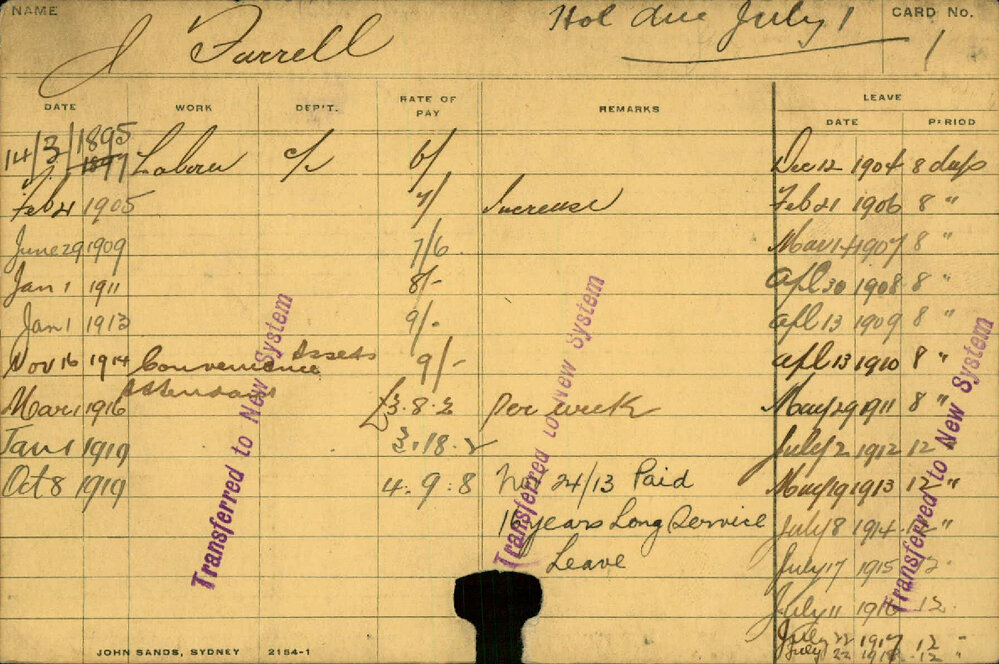 NAME J Farrell Hol due July 1 CARD No. 1
DATE WORK DEP'T. RATE OF PAY REMARKS LEAVE
DATE PERIOD
14/3/1895 Labour c/s 6/ Dec 12 1904 8 days
1897
Feb 21 1905 7/ Increase Feb 21 1906 8 "
June 29 1909 7/6 Mar 14 1907 8 "
Jan 1 1911 8/- Apl 30 1908 8 "
Jan 1 1913 9/- Apl 13 1909 8 "
Nov 16 1914 Convenience Assets 9/- Apl 13 1910 8 "
Attendant
Mar 1 1916 £3.8.3 per week May 29 1911 8 "
Jan 1 1919 3.18.2 July 2 1912 12
Oct 8 1919 4.9.8 24/13 Paid May 19 1913 12 "
years Long Service July 8 1914 12 "
Leave July 17 1915 12
July 11 1916 12
July 22 1917 12 "
July 22 1918 12 "
Transferred to New System
Transferred to New System
Transferred to New System
JOHN SANDS, SYDNEY 2154-1